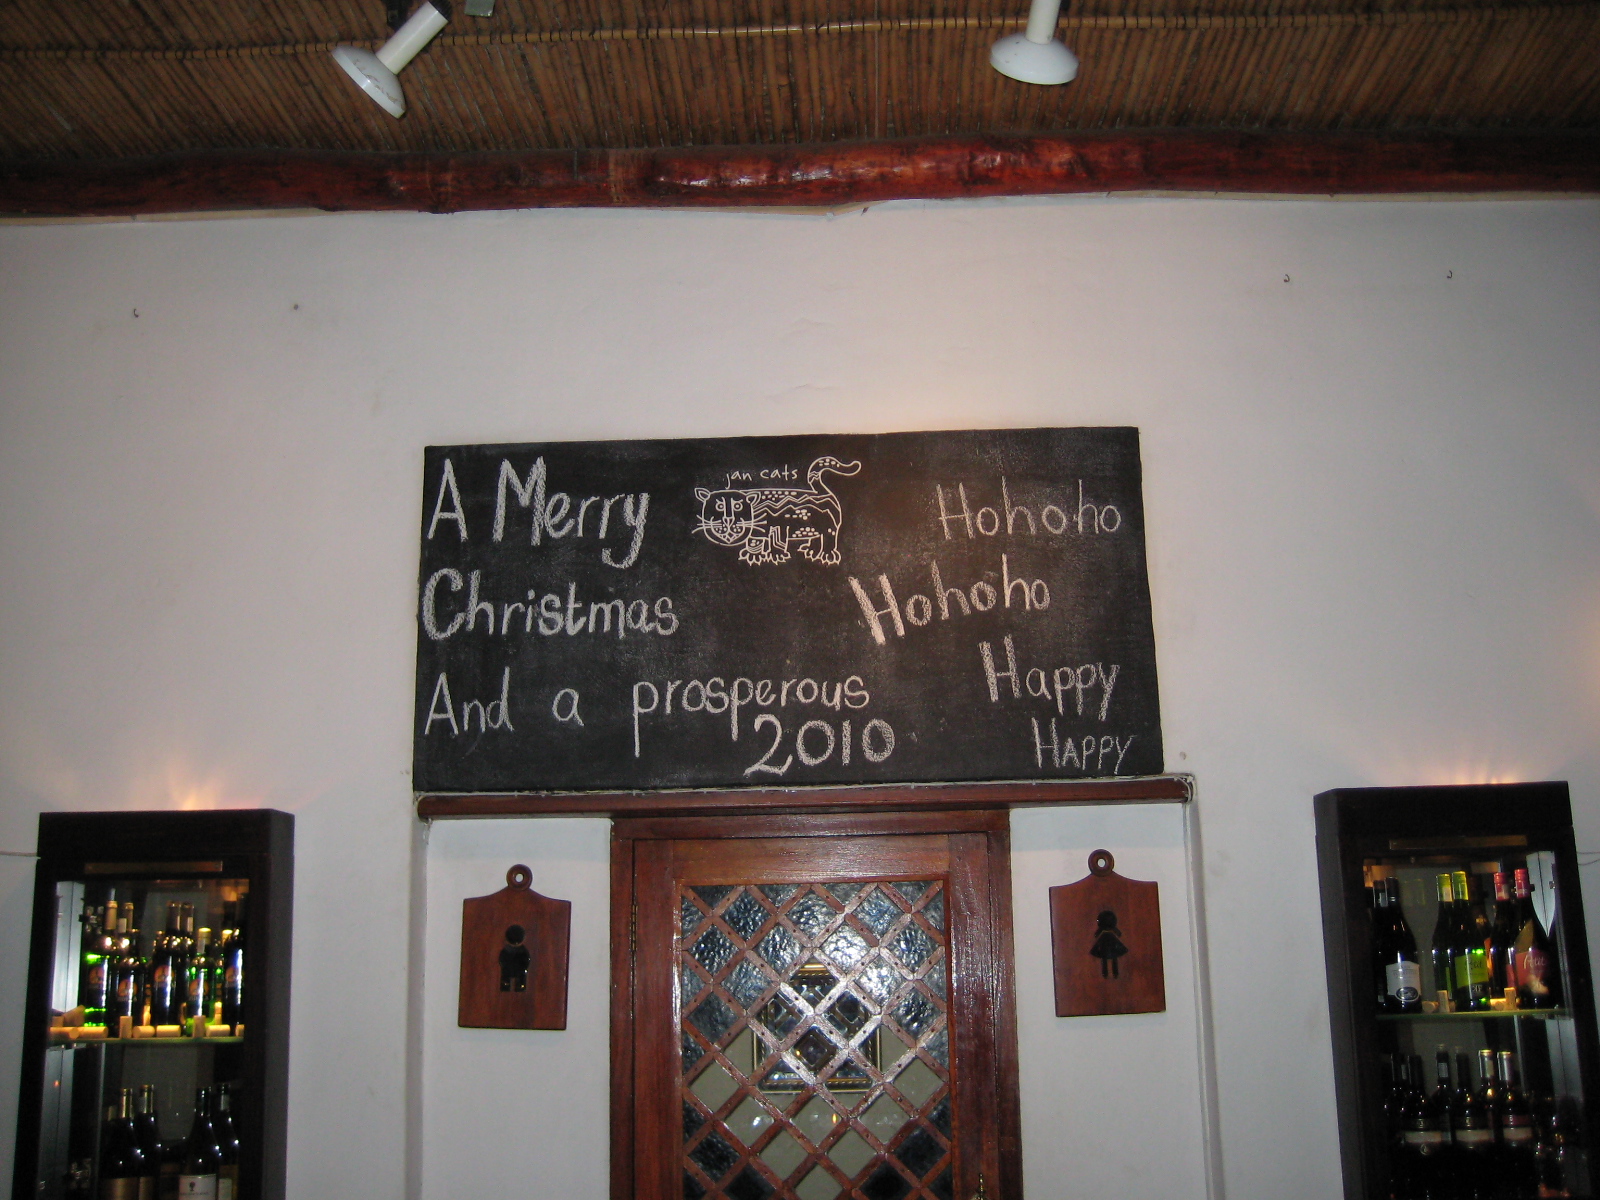 A Merry
Christmas
And a prosperous
2010
jan cats
Hohoho
Hohoho
Happy
HAPPY